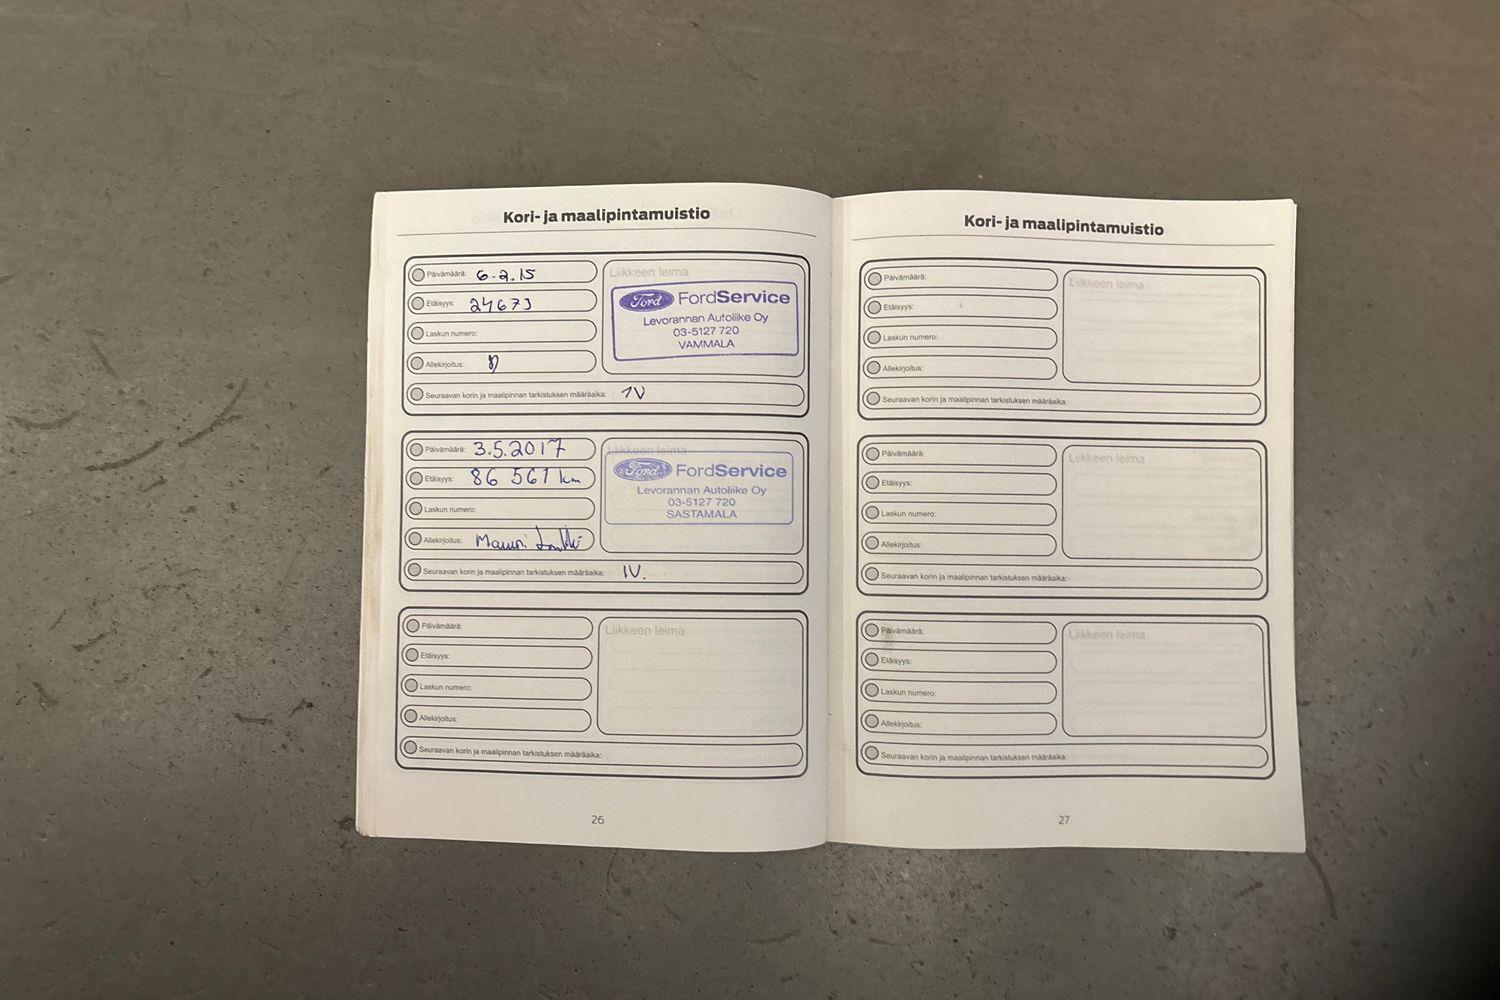 Kori- ja maalipintamuistio
Päivämäärä: 6.2.15
Etäisyys: 24673
Laskun numero:
Allekirjoitus:
Liikkeen leima
Ford FordService
Levorannan Autoliike Oy
03-5127 720
VAMMALA
Seuraavan korin ja maalipinnan tarkistuksen määräaika: 1V
Päivämäärä: 3.5.2017
Etäisyys: 86 561 km
Laskun numero:
Allekirjoitus: Mauri
Liikkeen leima
Ford FordService
Levorannan Autoliike Oy
03-5127 720
SASTAMALA
Seuraavan korin ja maalipinnan tarkistuksen määräaika: 1V.
Päivämäärä:
Etäisyys:
Laskun numero:
Allekirjoitus:
Liikkeen leima
Seuraavan korin ja maalipinnan tarkistuksen määräaika:
26
Kori- ja maalipintamuistio
Päivämäärä:
Etäisyys:
Laskun numero:
Allekirjoitus:
Liikkeen leima
Seuraavan korin ja maalipinnan tarkistuksen määräaika:
Päivämäärä:
Etäisyys:
Laskun numero:
Allekirjoitus:
Liikkeen leima
Seuraavan korin ja maalipinnan tarkistuksen määräaika:
Päivämäärä:
Etäisyys:
Laskun numero:
Allekirjoitus:
Liikkeen leima
Seuraavan korin ja maalipinnan tarkistuksen määräaika:
27